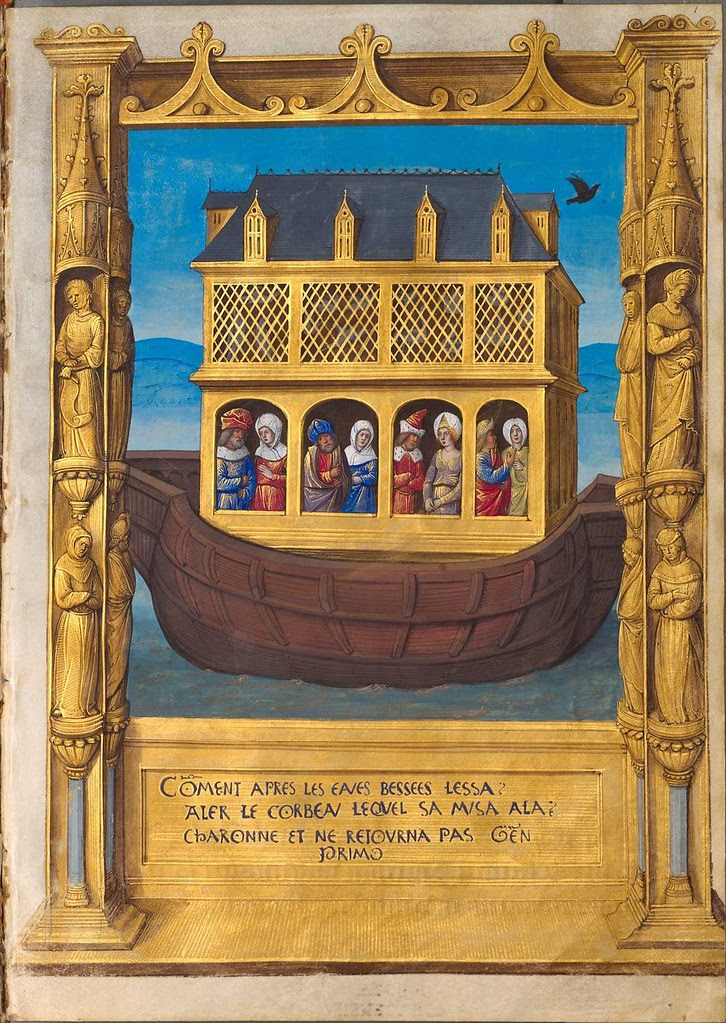 CŌMENT APRES LES EAVES BESSEES LESSA?
ALER LE CORBEAV LEQVEL SA MVSA ALA?
CHARONNE ET NE RETOVRNA PAS GEÑ
PRIMO